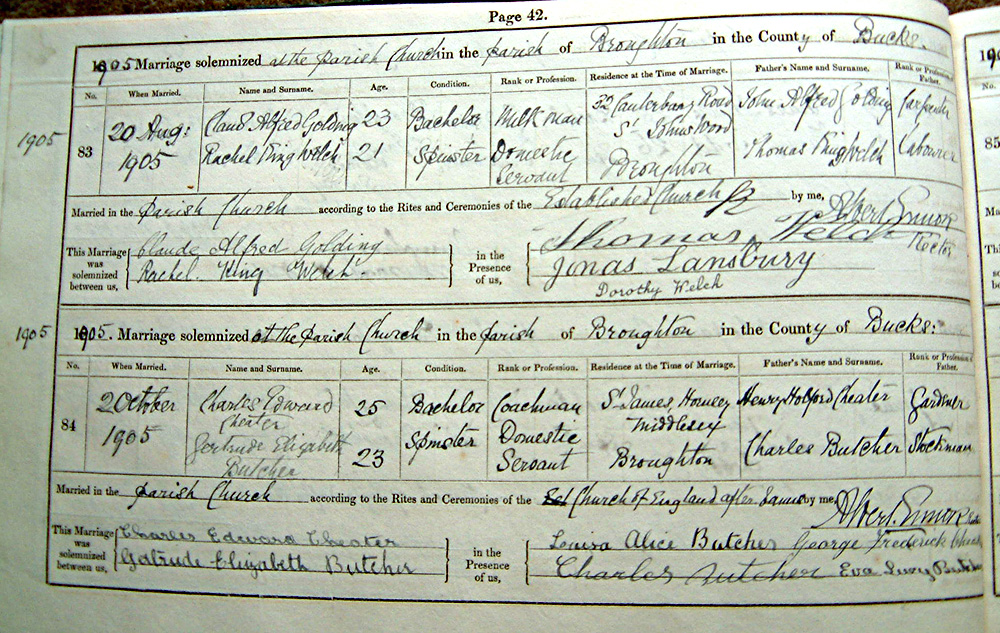 Page 42.
1905 Marriage solemnized at the Parish Church in the Parish of Broughton in the County of Bucks.
No. When Married. Name and Surname. Age. Condition. Rank or Profession. Residence at the Time of Marriage. Father's Name and Surname. Rank or Profession of Father.
1905
83 20 Aug: 1905 Claud Alfred Golding 23 Bachelor Milkman 32 Canterbury Road St Johns Wood John Alfred Golding Carpenter
Rachel King Welch 21 Spinster Domestic Servant Broughton Thomas King Welch Labourer
Married in the Parish Church according to the Rites and Ceremonies of the Established Church by me, Albert
Rector
This Marriage was solemnized between us, Claude Alfred Golding
Rachel King Welch
in the Presence of us, Thomas Welch
Jonas Lansbury
Dorothy Welch
1905
1905. Marriage solemnized at the Parish Church in the Parish of Broughton in the County of Bucks:
No. When Married. Name and Surname. Age. Condition. Rank or Profession. Residence at the Time of Marriage. Father's Name and Surname. Rank or Profession of Father.
84 2 October 1905 Charles Edward Cheater 25 Bachelor Coachman St James, Hornsey Middlesex Henry Holford Cheater Gardener
Gertrude Elizabeth Butcher 23 Spinster Domestic Servant Broughton Charles Butcher Stockman
Married in the Parish Church according to the Rites and Ceremonies of the Church of England after banns by me, Albert
This Marriage was solemnized between us, Charles Edward Cheater
Gertrude Elizabeth Butcher
in the Presence of us, Louisa Alice Butcher George Frederick
Charles Butcher Eva Lucy